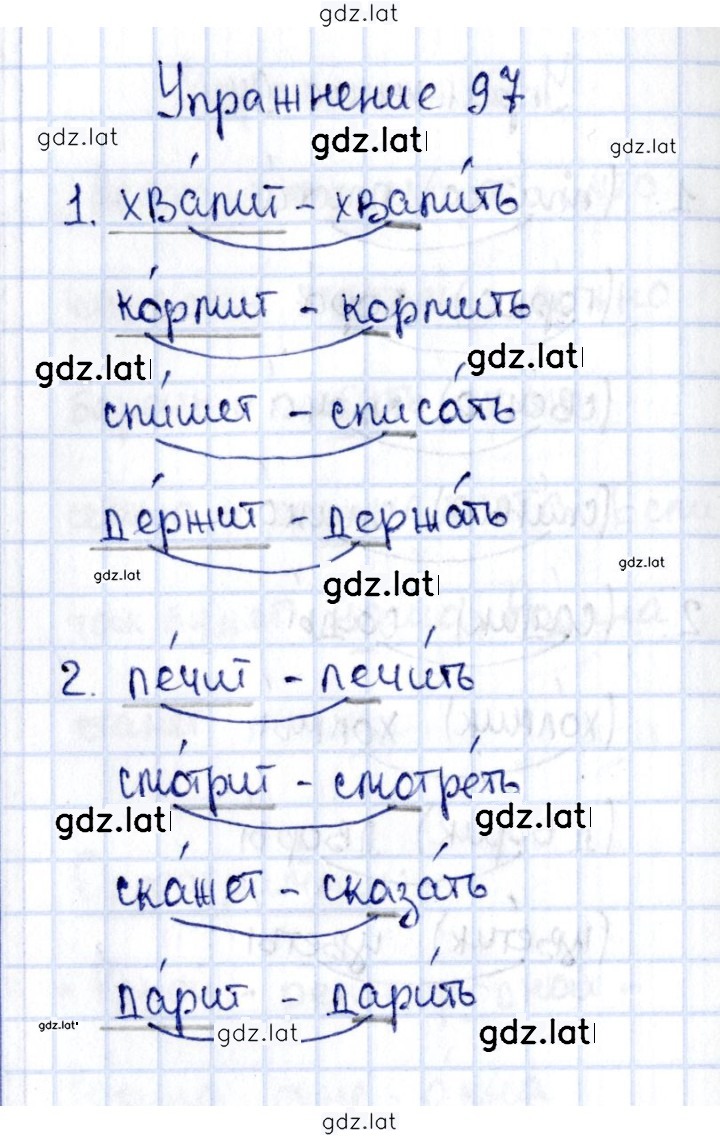 gdz.lat
Упражнение 97
gdz.lat gdz.lat gdz.lat
1. хва́лит - хвали́ть
ко́рмит - корми́ть
gdz.lat gdz.lat
спи́шет - списа́ть
де́ржит - держа́ть
gdz.lat gdz.lat gdz.lat
2. ле́чит - лечи́ть
смо́трит - смотре́ть
gdz.lat gdz.lat
ска́жет - сказа́ть
да́рит - дари́ть
gdz.lat gdz.lat gdz.lat
gdz.lat